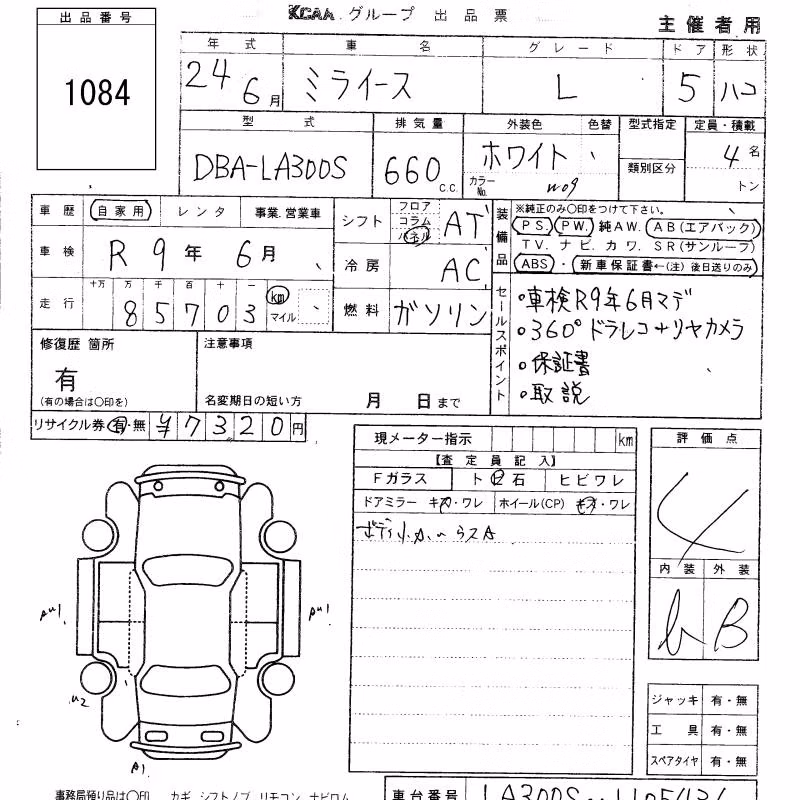 KCAA グループ 出品票
主催者用
出品番号
1084
年式 車名 グレード ドア 形状
24 6月 ミライース L 5 ハコ
型式 排気量 外装色 色替 型式指定 定員・積載
DBA-LA300S 660 c.c. ホワイト 類別区分 4名
カラーNo. W09 トン
車歴 自家用 レンタ 事業.営業車
車検 R9年6月
走行 十万 万 千 百 十 一 km マイル
85703
シフト フロア コラム パネル AT
冷房 AC
燃料 ガソリン
装備品 ※純正のみ〇印をつけて下さい。
PS. PW. 純AW. AB(エアバッグ)
TV. ナビ. カワ. SR(サンルーフ)
ABS・新車保証書←(注)後日送りのみ
セールスポイント
・車検R9年6月マデ
・360°ドラレコ+リヤカメラ
・保証書
・取説
修復歴 箇所
有
(有の場合は〇印を)
注意事項
名変期日の短い方 月 日まで
リサイクル券 有・無 ¥7320円
現メーター指示 km
【査定員記入】
Fガラス ト石 ヒビワレ
ドアミラー キズ・ワレ ホイール(CP) キズ・ワレ
評価点
4
内装 外装
b B
A1
ジャッキ 有・無
工具 有・無
スペアタイヤ 有・無
事務局預り品は〇印 カギ シフトノブ リモコン ナビロム
車台番号 LA300S